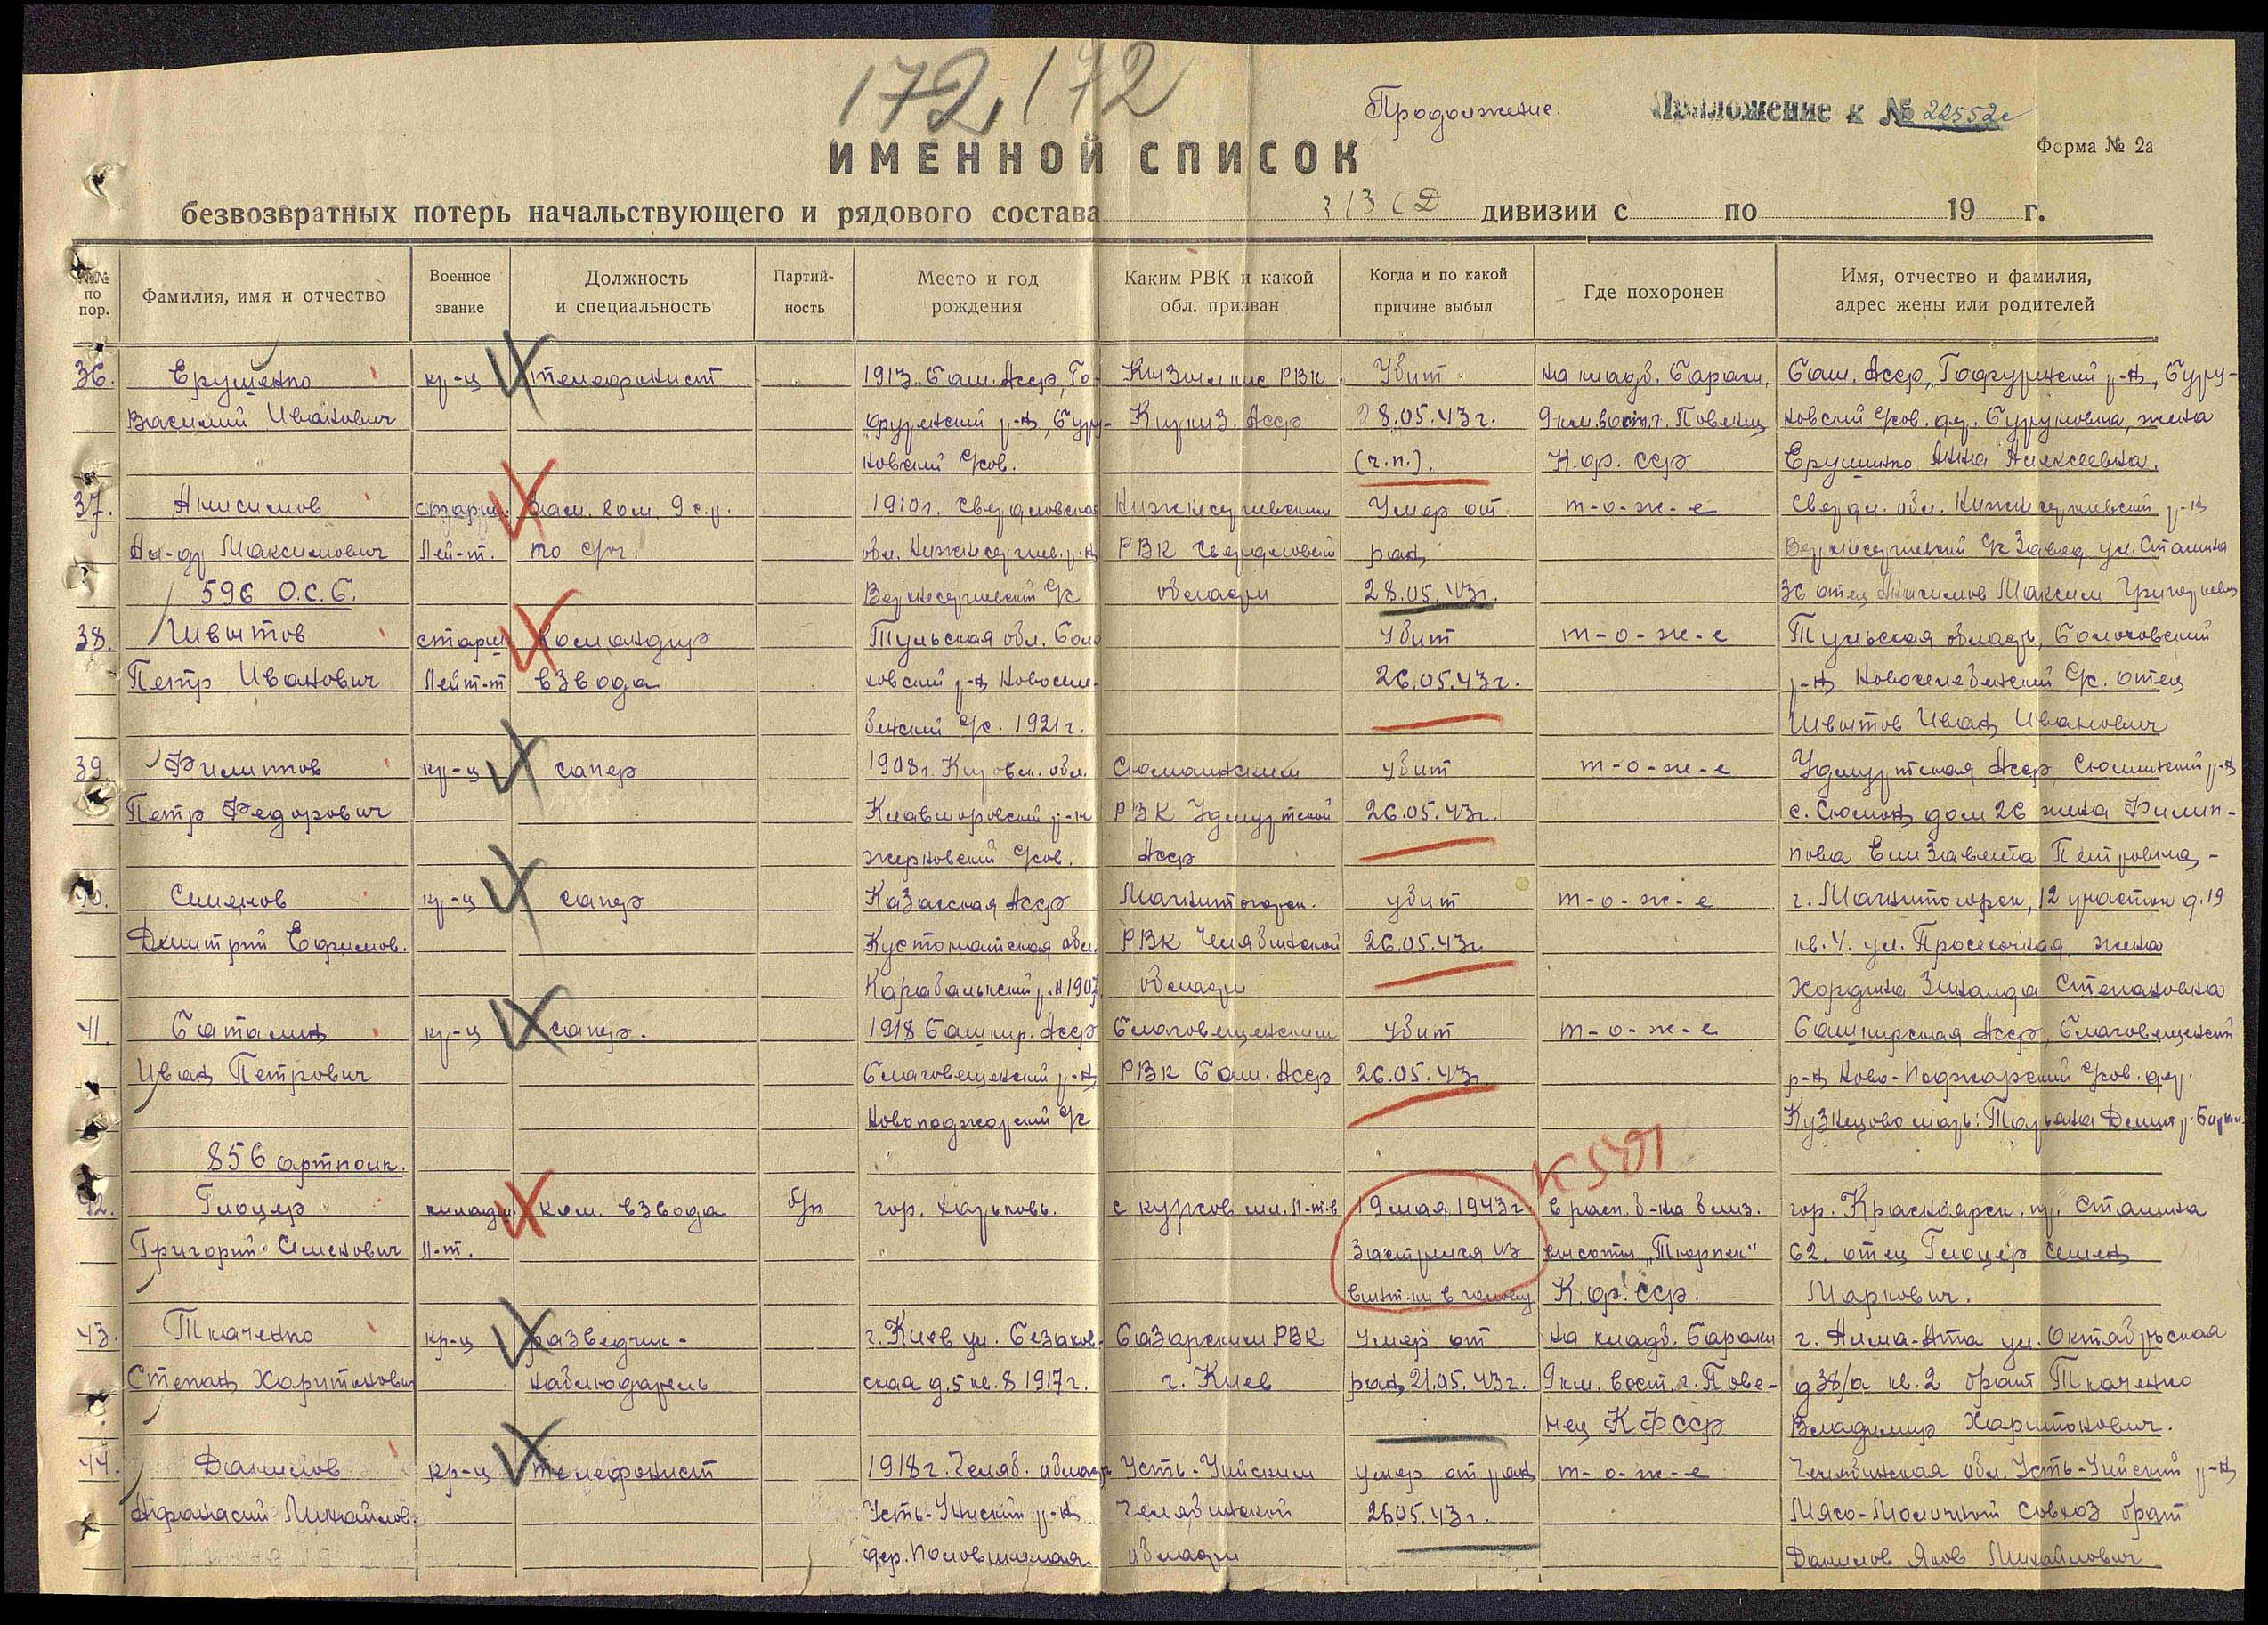 172, 172
Продолжение.
Приложение к № 22552с
Форма № 2а
ИМЕННОЙ СПИСОК
безвозвратных потерь начальствующего и рядового состава 313 СД дивизии с по 19 г.
№№ по пор.
Фамилия, имя и отчество
Военное звание
Должность и специальность
Партий-ность
Место и год рождения
Каким РВК и какой обл. призван
Когда и по какой причине выбыл
Где похоронен
Имя, отчество и фамилия, адрес жены или родителей
36. Ерушенко кр-ц телефонист 1913. Баш. Асср, Га- РВК Убит на кладб. Бараки, Баш. Асср, Гафурийский р-н, Буру-
Василий Иванович фурийский р-н, Буру- Киргиз. Асср 28.05.43г. 9 км. вост. г. Повенец новский с/сов. дер. Буруновка, жена
новский с/сов. (ч.п.). К.ф. сср Ерушенко Анна Алексеевна.
37. Анисимов старш. зам. ком. 9 с.р. 1910г. Свердловская Нижнесергиевским Умер от т-о-ж-е Свердл. обл. Нижнесергиевский р-н
Ал-др Максимович Лей-т. по с/ч. обл. Нижнесергиев. р-н РВК Свердловской ран Верхнесергиевский с/с Завод ул. Сталина
596 О.С.Б. Верхнесергиевский с/с области 28.05.43г. 36 отец Анисимов Максим Григорьевич
38. Швытов старш. Командир Тульская обл. Боло- Убит т-о-ж-е Тульская область, Болоховский
Петр Иванович Лейт-т взвода ховский р-н Новосele- 26.05.43г. р-н с/с. отец
бенский с/с. 1921г. Швытов Иван Иванович
39. Филиппов кр-ц сапер 1908г. Кировск. обл. Сюмсинским убит т-о-ж-е Удмуртская Асср Сюмсинский р-н
Петр Федорович р-н РВК Удмуртской 26.05.43г. с. Сюмси дом 26 жена Филип-
с/сов. Асср пова Елизавета Петровна, -
40. Семенов кр-ц сапер Казахская Асср Магнитогорск. убит т-о-ж-е г. Магнитогорск, 12 участок д. 19
Дмитрий Ефимов. Кустонайская обл. РВК Челябинской 26.05.43г. кв. 4. ул. Просечная, жена
Карабалыкский р-н 1907 области Зинаида Степановна
41. Баталин кр-ц сапер. 1918 Башкир. Асср Благовещенским убит т-о-ж-е Башкирская Асср, Благовещенский
Иван Петрович Благовещенский р-н РВК Баш. Асср 26.05.43г р-н Ново-Наджарский с/сов. дер.
Новонаджарский с/с Кузнецово мать: Татьяна Дмитр.
856 артполк. К 5401
42. Глоцер младш. ком. взвода б/п гор. Харьковь. с курсов мл. л-т-в 19 мая 1943г. в расп. б-на близ. гор. Красноярск. пр. Сталина
Григорий Семенович л-т. Застрелился из высоты „Тюрпек" 62. отец Глоцер Семен
винт-ки в голову К.ф. сср. Маркович.
43. Ткаченко кр-ц разведчик- г. Киев ул. Безаков- Базарским РВК умер от на кладб. Бараки г. Алма-Ата ул. Октябрьская
Степан Харитонович наблюдатель ская д. 5 кв. 8 1917г. г. Киев ран 21.05.43г. 9 км. вост. г. Пове- д 38/а кв. 2 брат Ткаченко
нец К Ф сср Владимир Харитонович.
44. Данилов кр-ц телефонист 1918г. Челяб. область Усть-Уйским умер от ран т-о-ж-е Челябинская обл. Усть-Уйский р-н
Афанасий Михайлов. Усть-Уйский р-н Челябинской 26.05.43г. Мясо-Молочный совхоз брат
дер. Половинная области Данилов Яков Михайлович